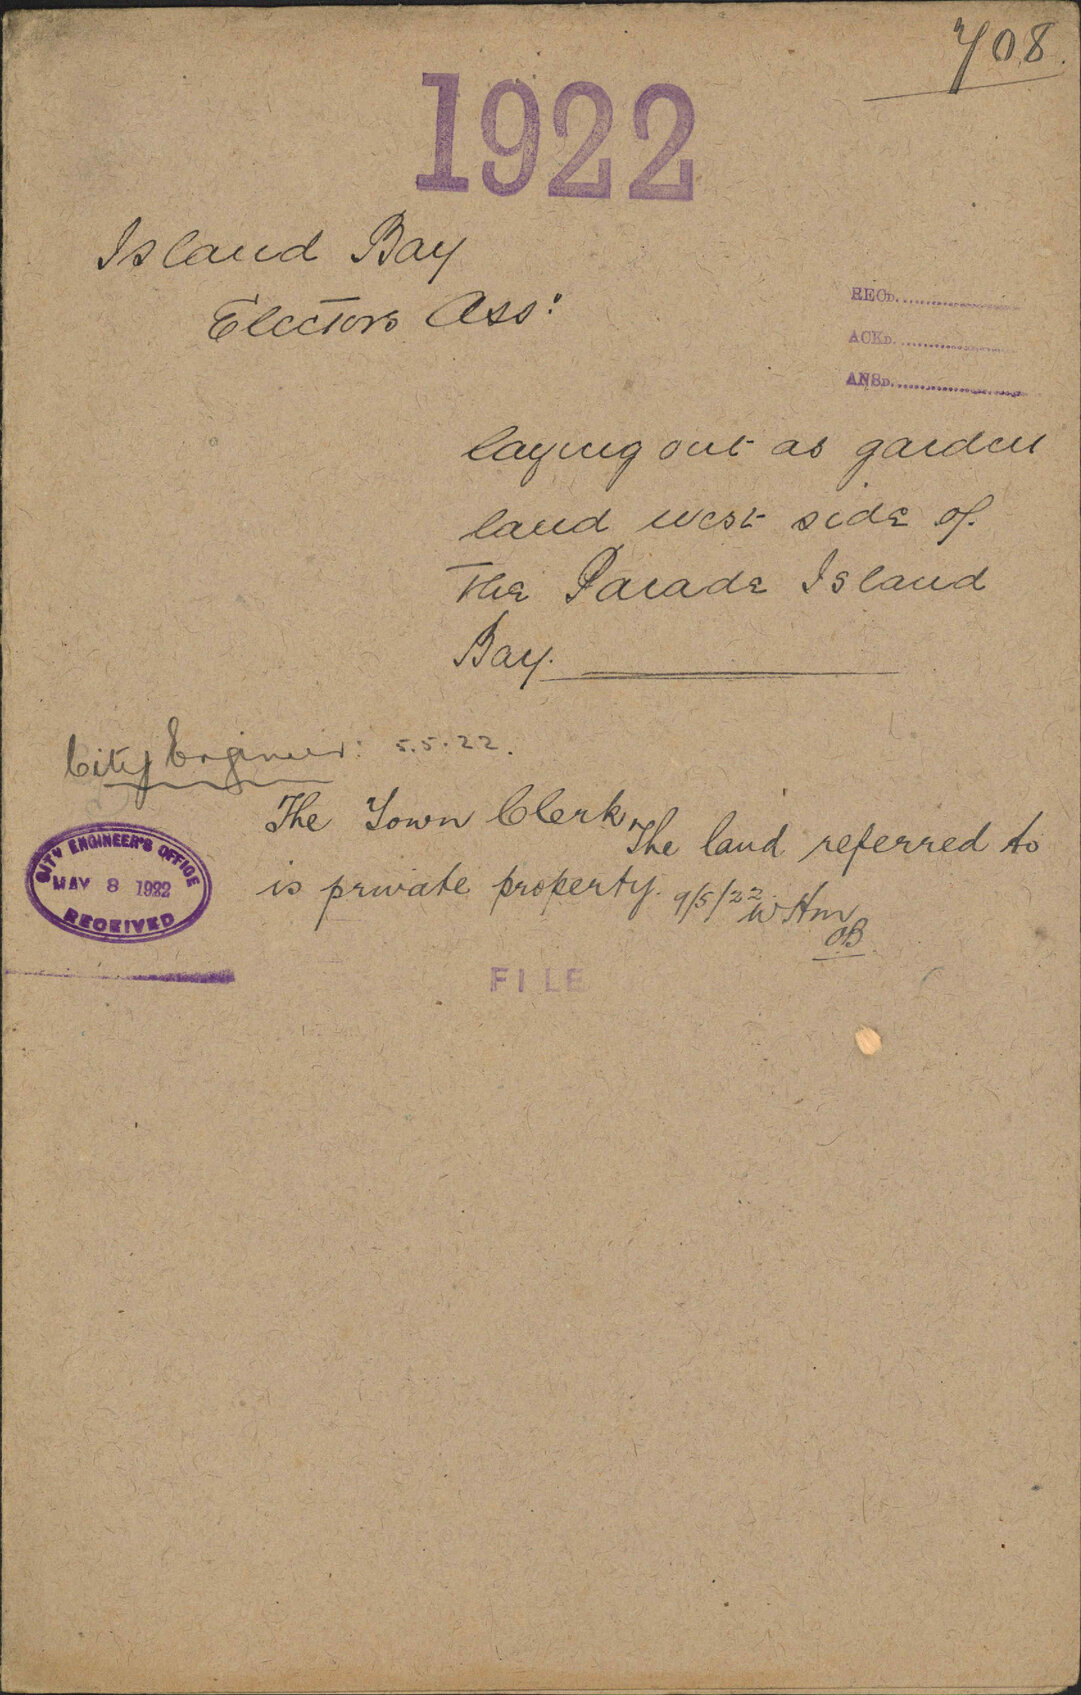 708.
1922
Island Bay
Electors Ass:
RECD.
ACKD.
ANSD.
laying out as garden
land west side of
The Parade Island
Bay.
City Engineer: 5.5.22.
The Town Clerk
The land referred to
is private property. 9/5/22
CITY ENGINEER'S OFFICE
MAY 8 1922
RECEIVED
FILE